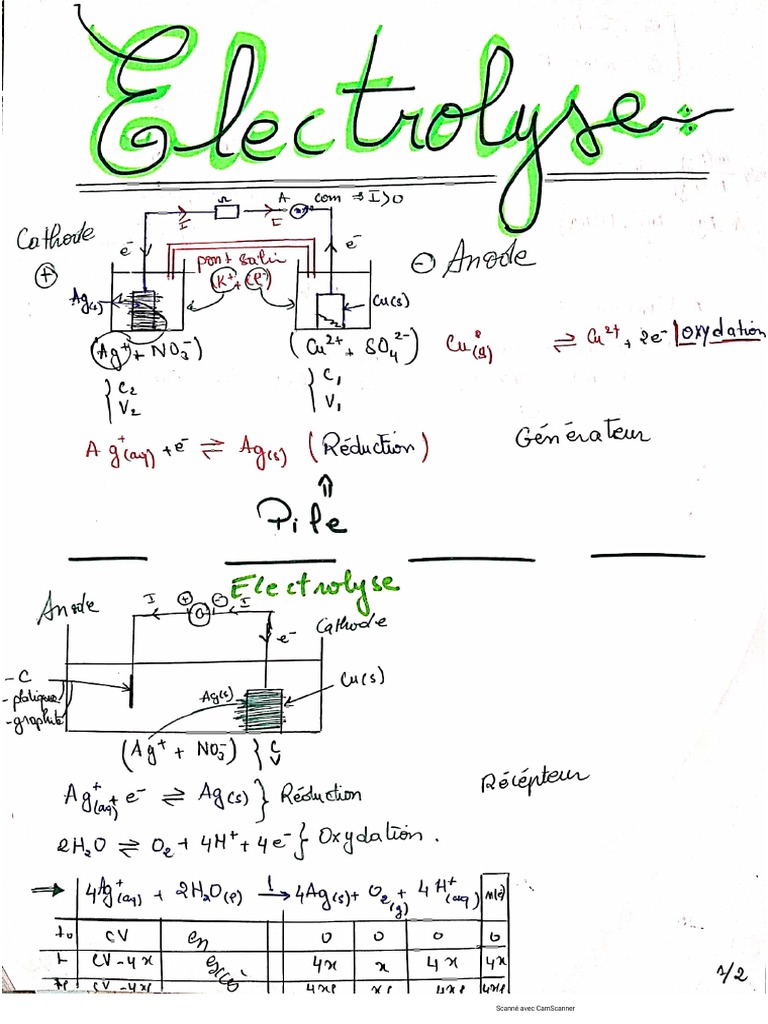 Electrolyse
Ω A com ⇒ I>0
I I
Cathode
⊕
e⁻ e⁻
pont salin
(K⁺ + Cl⁻)
⊖ Anode
Ag(s) Cu(s)
(Ag⁺ + NO₃⁻) (Cu²⁺ + SO₄²⁻) Cu(s) ⇌ Cu²⁺ + 2e⁻ | oxydation
C₂ C₁
V₂ V₁
Ag⁺(aq) + e⁻ ⇌ Ag(s) (Réduction) Générateur
⇑
Pile
Electrolyse
Anode I ⊕ G ⊖ I Cathode
e⁻
- C
- platique
- graphite
Ag(s) Cu(s)
(Ag⁺ + NO₃⁻) } C
V
Ag⁺(aq) + e⁻ ⇌ Ag(s) } Réduction Récépteur
2H₂O ⇌ O₂ + 4H⁺ + 4e⁻ } Oxydation.
⇒ 4Ag⁺(aq) + 2H₂O(l) →1 4Ag(s) + O₂(g) + 4H⁺(aq) n(e)
t₀ CV en 0 0 0 0
t CV-4x excés 4x x 4x 4x
tf CV-4xf 4xf xf 4xf 4xf
1/2
Scanné avec CamScanner